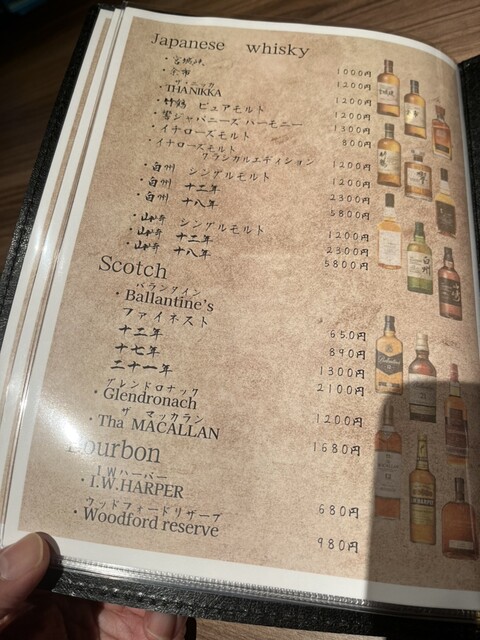 Japanese whisky
・宮城峡 1000円
・余市 1200円
ザ・ニッカ
・THA NIKKA 1200円
・竹鶴 ピュアモルト 1200円
・響ジャパニーズ ハーモニー 1300円
・イチローズモルト 800円
・イチローズモルト
クラシカルエディション 1200円
・白州 シングルモルト 1200円
・白州 十二年 2300円
・白州 十八年 5800円
・山崎 シングルモルト 1200円
・山崎 十二年 2300円
・山崎 十八年 5800円
Scotch
バランタイン
・Ballantine's
ファイネスト 650円
十二年 890円
十七年 1300円
二十一年 2100円
グレンドロナック
・Glendronach 1200円
ザ マッカラン
・Tha MACALLAN 1680円
Bourbon
I.Wハーパー
・I.W.HARPER 680円
ウッドフォードリザーブ
・Woodford reserve 980円